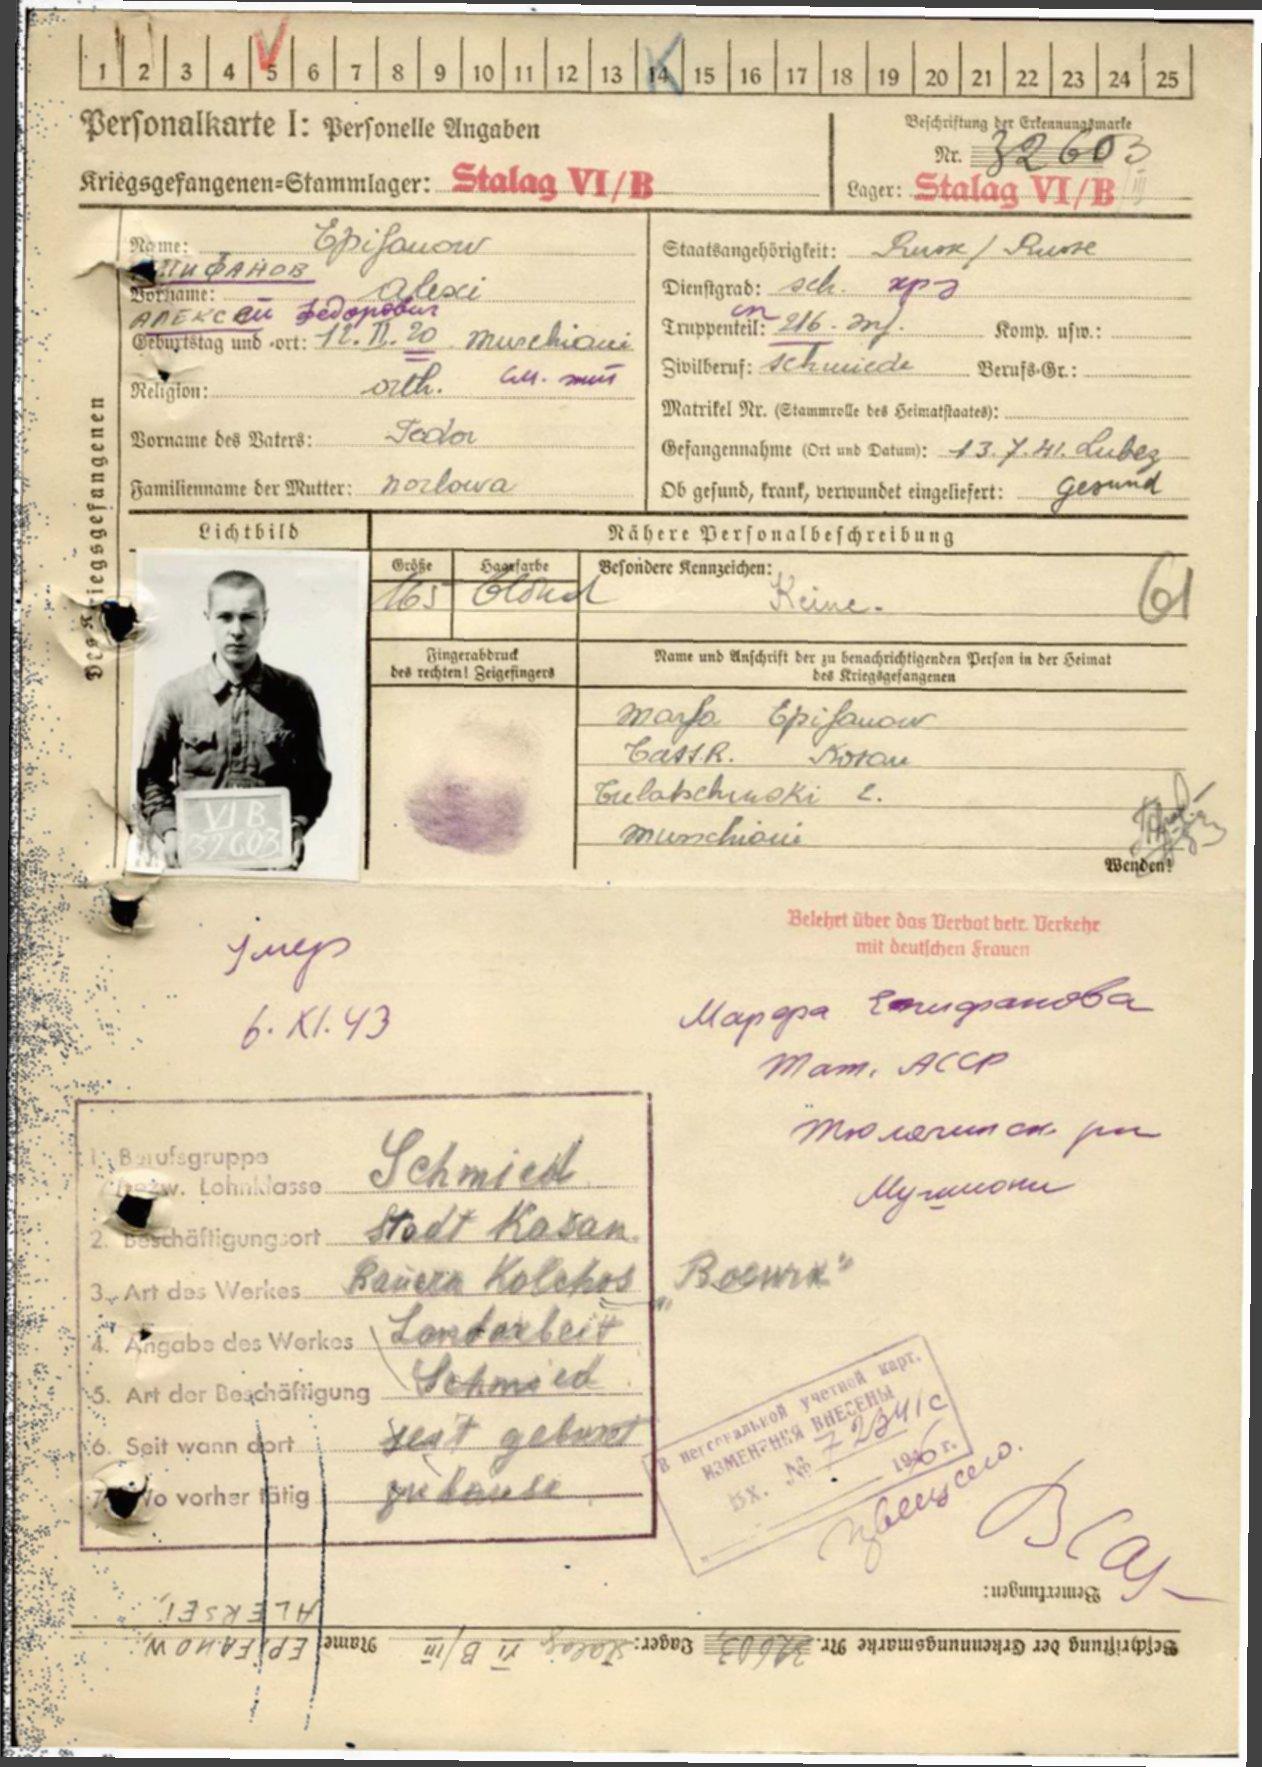 1 2 3 4 5 6 7 8 9 10 11 12 13 14 15 16 17 18 19 20 21 22 23 24 25
Personalkarte I: Personelle Angaben
Kriegsgefangenen-Stammlager: Stalag VI/B
Beschriftung der Erkennungsmarke
Nr. 32603
Lager: Stalag VI/B
Des Kriegsgefangenen
Name: Epifanow
ЕПИФАНОВ
Vorname: Alexi
АЛЕКСЕЙ Федорович
Geburtstag und -ort: 12. II. 20 Murschiani
Religion: orth.
Vorname des Vaters: Fedor
Familienname der Mutter: Norlowa
Staatsangehörigkeit: Russe
Dienstgrad: sch.
Truppenteil: 216. Inf. Komp. usw.:
Zivilberuf: Schmiede Berufs-Gr.:
Matrikel Nr. (Stammrolle des Heimatstaates):
Gefangennahme (Ort und Datum): 13.7.41. Lubez
Ob gesund, krank, verwundet eingeliefert: gesund
Lichtbild
Nähere Personalbeschreibung
Größe 165
Haarfarbe blond
Besondere Kennzeichen: Keine.
61
Fingerabdruck
des rechten! Zeigefingers
Name und Anschrift der zu benachrichtigenden Person in der Heimat
des Kriegsgefangenen
Marfa Epifanow
TASS.R. Kosan
Murschiani
VI B
32603
Wenden!
Belehrt über das Verbot betr. Verkehr
mit deutschen Frauen
Умер
6. XI. 43
Марфа Епифанова
Тат. АССР
Тюлячинск. рн
Мушиони
1. Berufsgruppe
bezw. Lohnklasse Schmied
2. Beschäftigungsort Stadt Kasan.
3. Art des Werkes Bauern Kolchos
4. Angabe des Werkes Landarbeit
5. Art der Beschäftigung Schmied
6. Seit wann dort seit geburt
7. Wo vorher tätig zuhause
В персональной учетной карт.
ИЗМЕНЕНИЯ ВНЕСЕНЫ
ВХ. №
1946 г.
Bemerkungen:
Beschriftung der Erkennungsmarke Nr. 32603, Lager: Stalag VI B/III Name: EPIFANOW,
ALEKSEI,